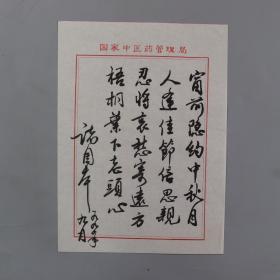 国家中医药管理局
窗前隐约中秋月
人逢佳節倍思親
忍将哀愁寄遠方
梧桐葉下老頭心
諸国本
一九九〇年
九月